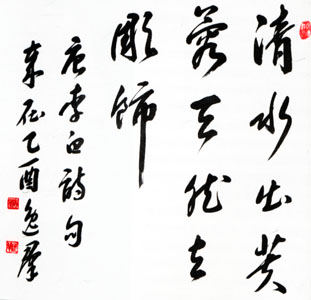 清水出芙
蓉天然去
雕饰
唐李白诗句
岁在乙酉逸群